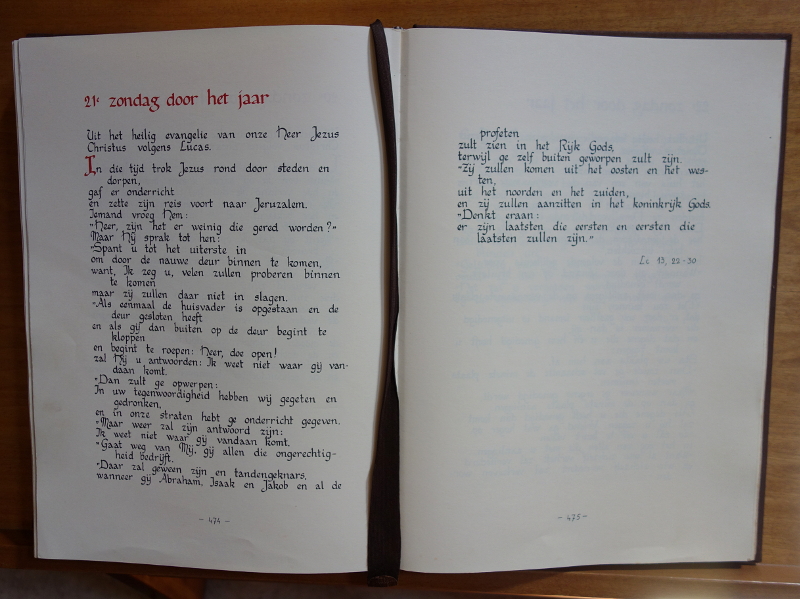 21e zondag door het jaar
Uit het heilig evangelie van onze Heer Jezus
Christus volgens Lucas.
In die tijd trok Jezus rond door steden en
dorpen,
gaf er onderricht
en zette zijn reis voort naar Jeruzalem.
Iemand vroeg Hem:
"Heer, zijn het er weinig die gered worden?"
Maar Hij sprak tot hen:
"Spant u tot het uiterste in
om door de nauwe deur binnen te komen,
want, Ik zeg u, velen zullen proberen binnen
te komen
maar zij zullen daar niet in slagen.
"Als eenmaal de huisvader is opgestaan en de
deur gesloten heeft
en als gij dan buiten op de deur begint te
kloppen
en begint te roepen: Heer, doe open!
zal Hij u antwoorden: Ik weet niet waar gij van-
daan komt.
"Dan zult ge opwerpen:
In uw tegenwoordigheid hebben wij gegeten en
gedronken,
en in onze straten hebt ge onderricht gegeven.
"Maar weer zal zijn antwoord zijn:
Ik weet niet waar gij vandaan komt.
"Gaat weg van Mij, gij allen die ongerechtig-
heid bedrijft.
"Daar zal geween zijn en tandengeknars,
wanneer gij Abraham, Isaak en Jakob en al de
- 474 -
profeten
zult zien in het Rijk Gods,
terwijl ge zelf buiten geworpen zult zijn.
"Zij zullen komen uit het oosten en het wes-
ten,
uit het noorden en het zuiden,
en zij zullen aanzitten in het koninkrijk Gods.
"Denkt eraan:
er zijn laatsten die eersten en eersten die
laatsten zullen zijn."
Lc 13, 22-30
- 475 -